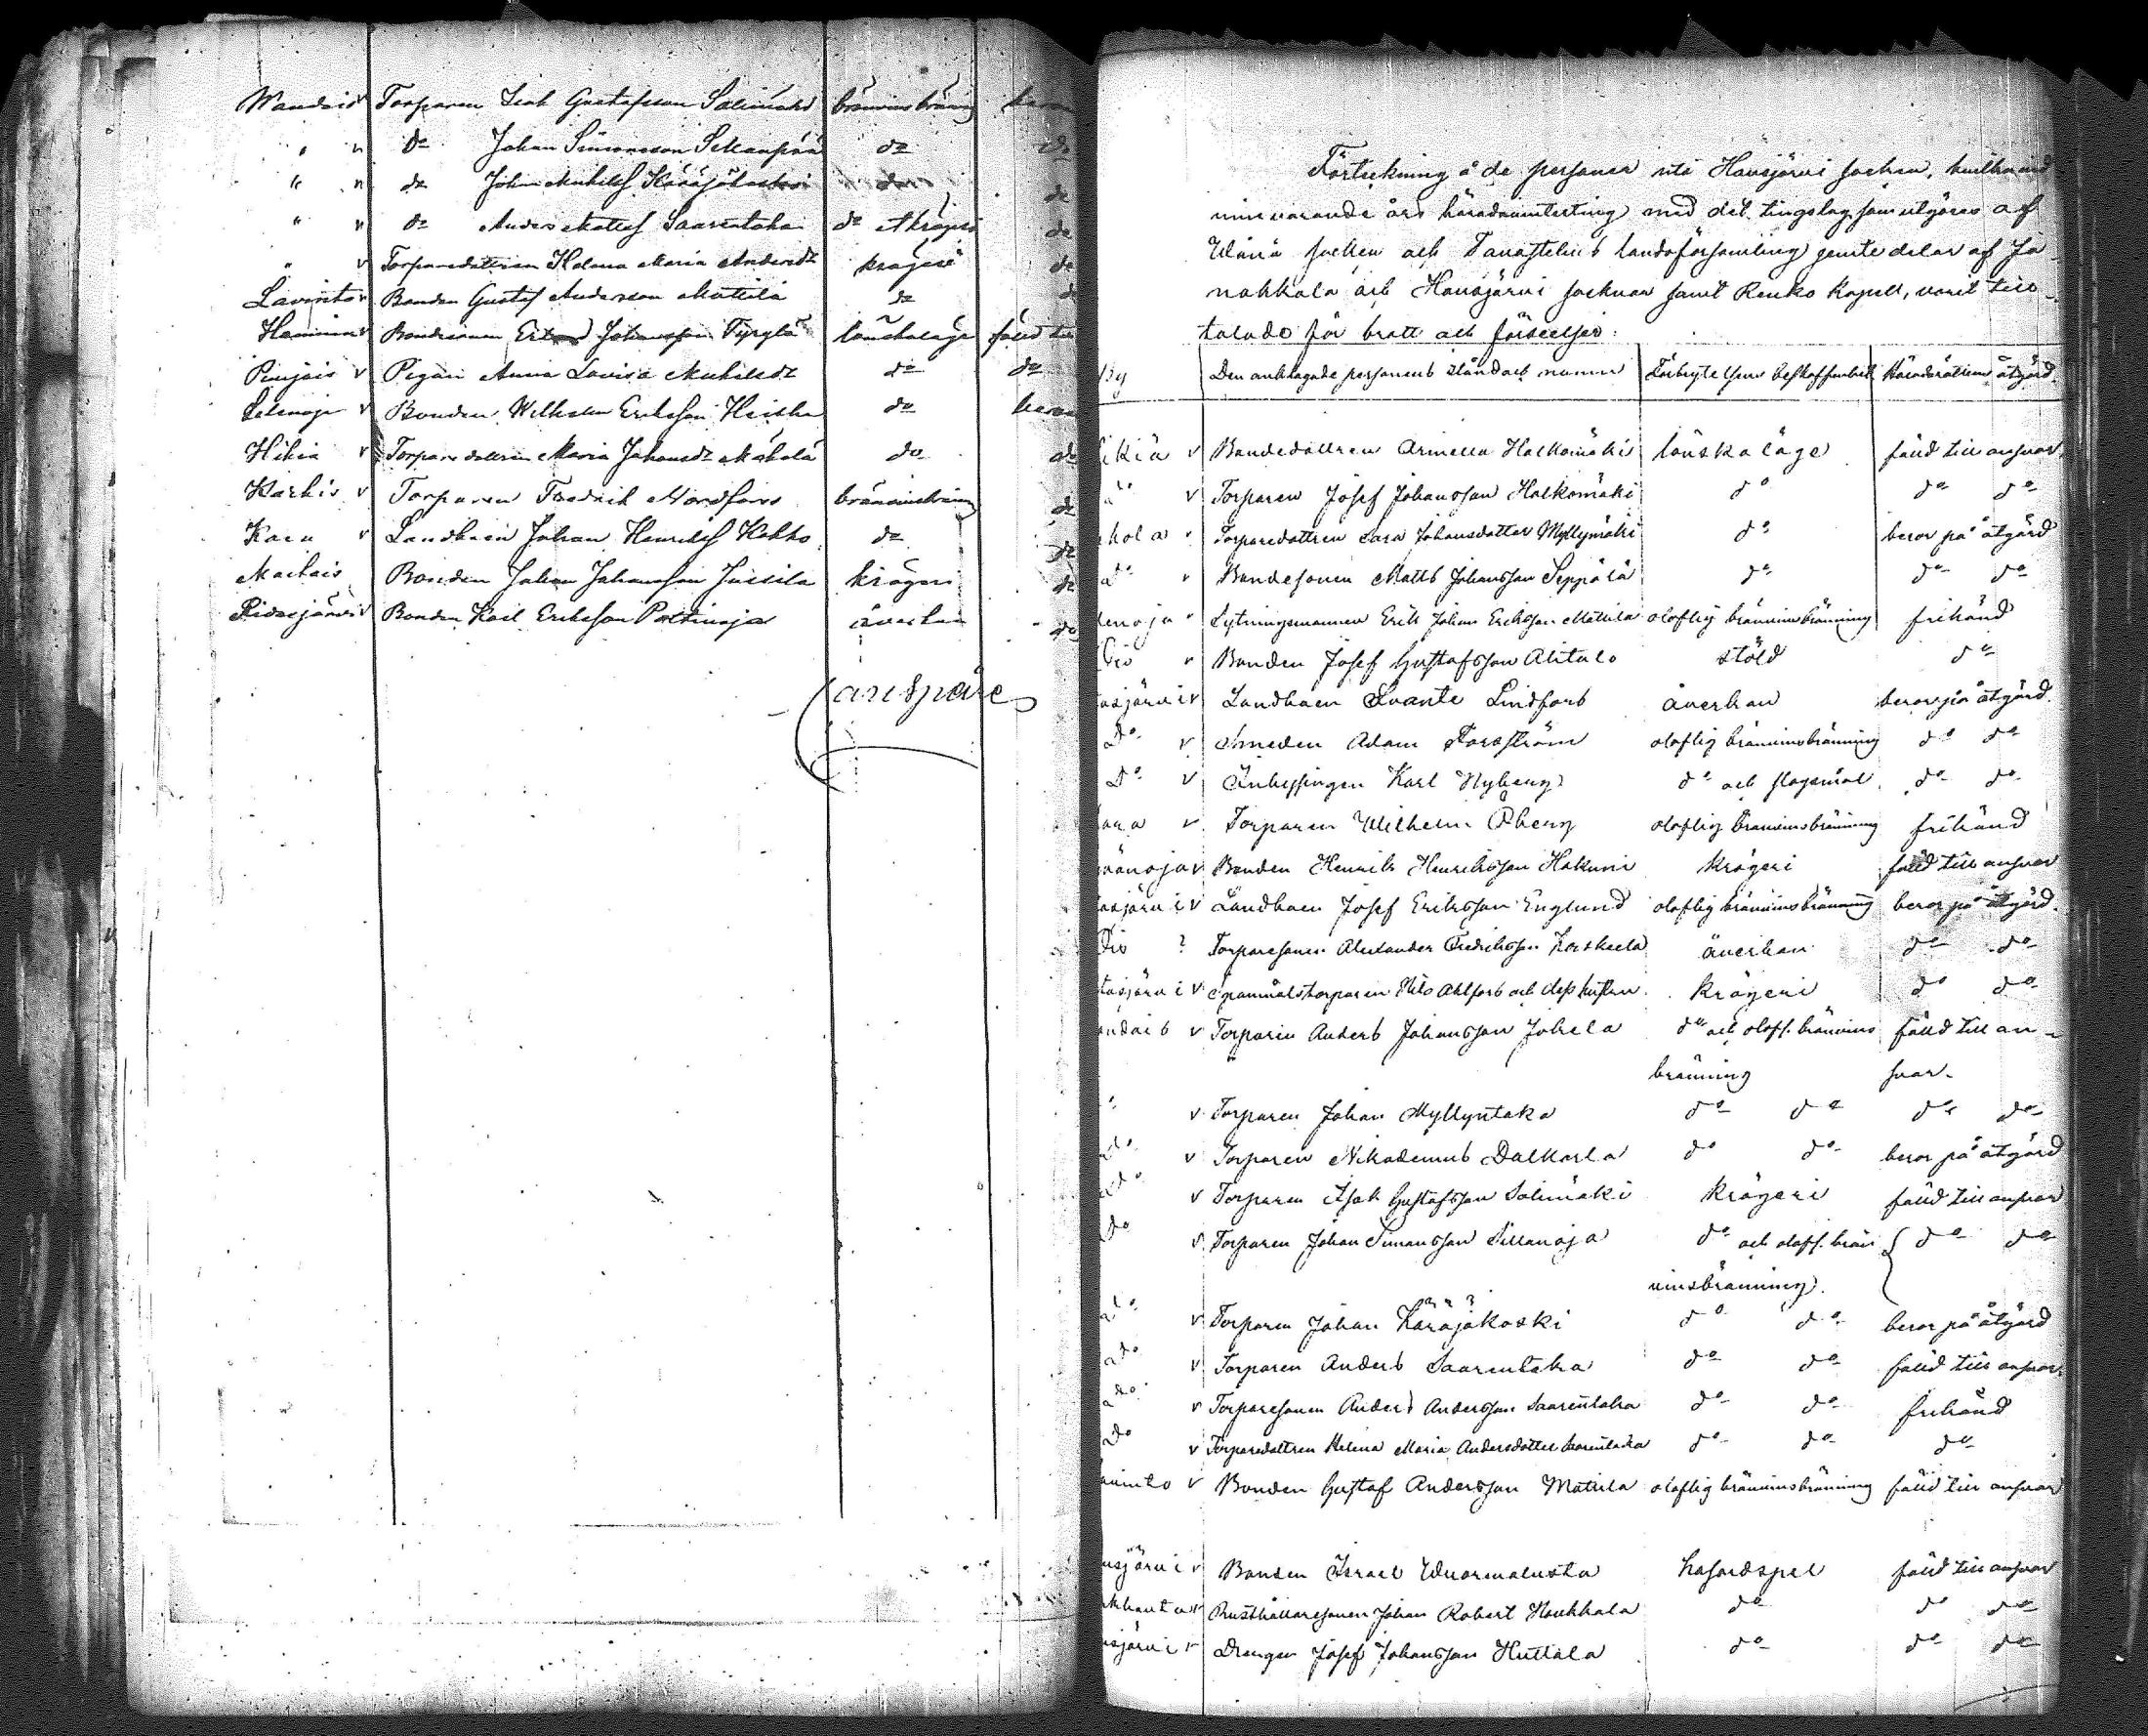 Wandais Torparen Isak Gustafsson Salimäki bränvinsbräning beror
" " do Johan Simonsson Sillanpää do do
" " do Johan Mickelss Käräjäkoski do do
" " do Anders Mattss Saarentaka do et krögeri do
" v Torparedottren Helena Maria Andersdr krögeri do
Lavinto v Bonden Gustaf Andersson Mattila do do
Hamina v Bondesonen Johansson Tyrylä lönskaläge fälld till
Puujais v Pigan Anna Lovisa Mickelsdr do do
Selenoja v Bonden Wilhelm Eriksson Heisku do beror
Hikiä v Torparedottren Maria Johansdr Mäkelä do do
Karhis v Torparen Fredrik Nordfors bränvinsbräning do
Kara v Landbon Johan Henrikss Kokko do do
Bonden Johan Johansson Jussila krögeri do
Ridasjärvi v Bonden Karl Eriksson Paltinoja åverkan do
Förtekning å de personer uti Hausjärvi socken, hvilka vid
innevarande års häradsvinterting med det tingslag som utgöres af
Wånå socken och Tavastehus landsförsamling jemte delar af Ja-
nakkala och Hausjärvi socknar samt Renko Kapell, varit till-
talade för brott och förseelser:
By Den anklagade personens stånd och namn Förbrytelsens beskaffenhet Häradsrättens åtgärd
ikiä v Bondedottren Armella Halkomäki lönskaläge fälld till ansvar
do v Torparen Josef Johansson Halkomäki do do do
kola v Torparedottren Sara Johansdotter Myllymäki do beror på åtgärd
do v Bondesonen Matts Johansson Seppälä do do do
lenoja v Lytningsmannen Erik Johan Eriksson Mattila oloflig bränvinsbränning frikänd
v Bonden Josef Gustafsson Alitalo stöld do
asjärvi v Landboen Svante Lindfors åverkan beror på åtgärd
Do v Smeden Adam Forsström oloflig bränvinsbränning do do
Do v Inhysingen Karl Nyberg do och slagsmål do do
ara v Torparen Wilhelm Åberg oloflig bränvinsbränning frikänd
änoja v Bonden Henrik Henriksson Hakuni krögeri fälld till ansvar
asjärvi v Landboen Josef Eriksson Englund oloflig bränvinsbränning beror på åtgärd
Torparesonen Alexander Fredriksson Koskela åverkan do do
tasjärvi v Spanmålstorparen Nils Ahlfors och dess hustru krögeri do do
andais v Torparen Anders Johansson Jokela do och olofl. bränvins fälld till an-
bränning svar
v Torparen Johan Myllyntaka do do do do
do v Torparen Nikodemus Dalkarla do do beror på åtgärd
do v Torparen Isak Gustafsson Salimäki krögeri fälld till ansvar
do v Torparen Johan Simonsson Sillanoja do och olofl. brän do do
vinsbränning
do v Torparen Johan Käräjäkoski do do beror på åtgärd
do v Torparen Anders Saarentaka do do fälld till ansvar
do v Torparesonen Anders Andersson Saarentaka do do frikänd
do v Torparedottren Helena Maria Andersdotter Saarentaka do do do
vinto v Bonden Gustaf Andersson Mattila oloflig bränvinsbränning fälld till ansvar
usjärvi v Bonden Israel Wuormalusta hasardspel fälld till ansvar
v Rusthållaresonen Johan Robert Haukkala do do do
usjärvi v Drengen Josef Johansson Huttala do do do